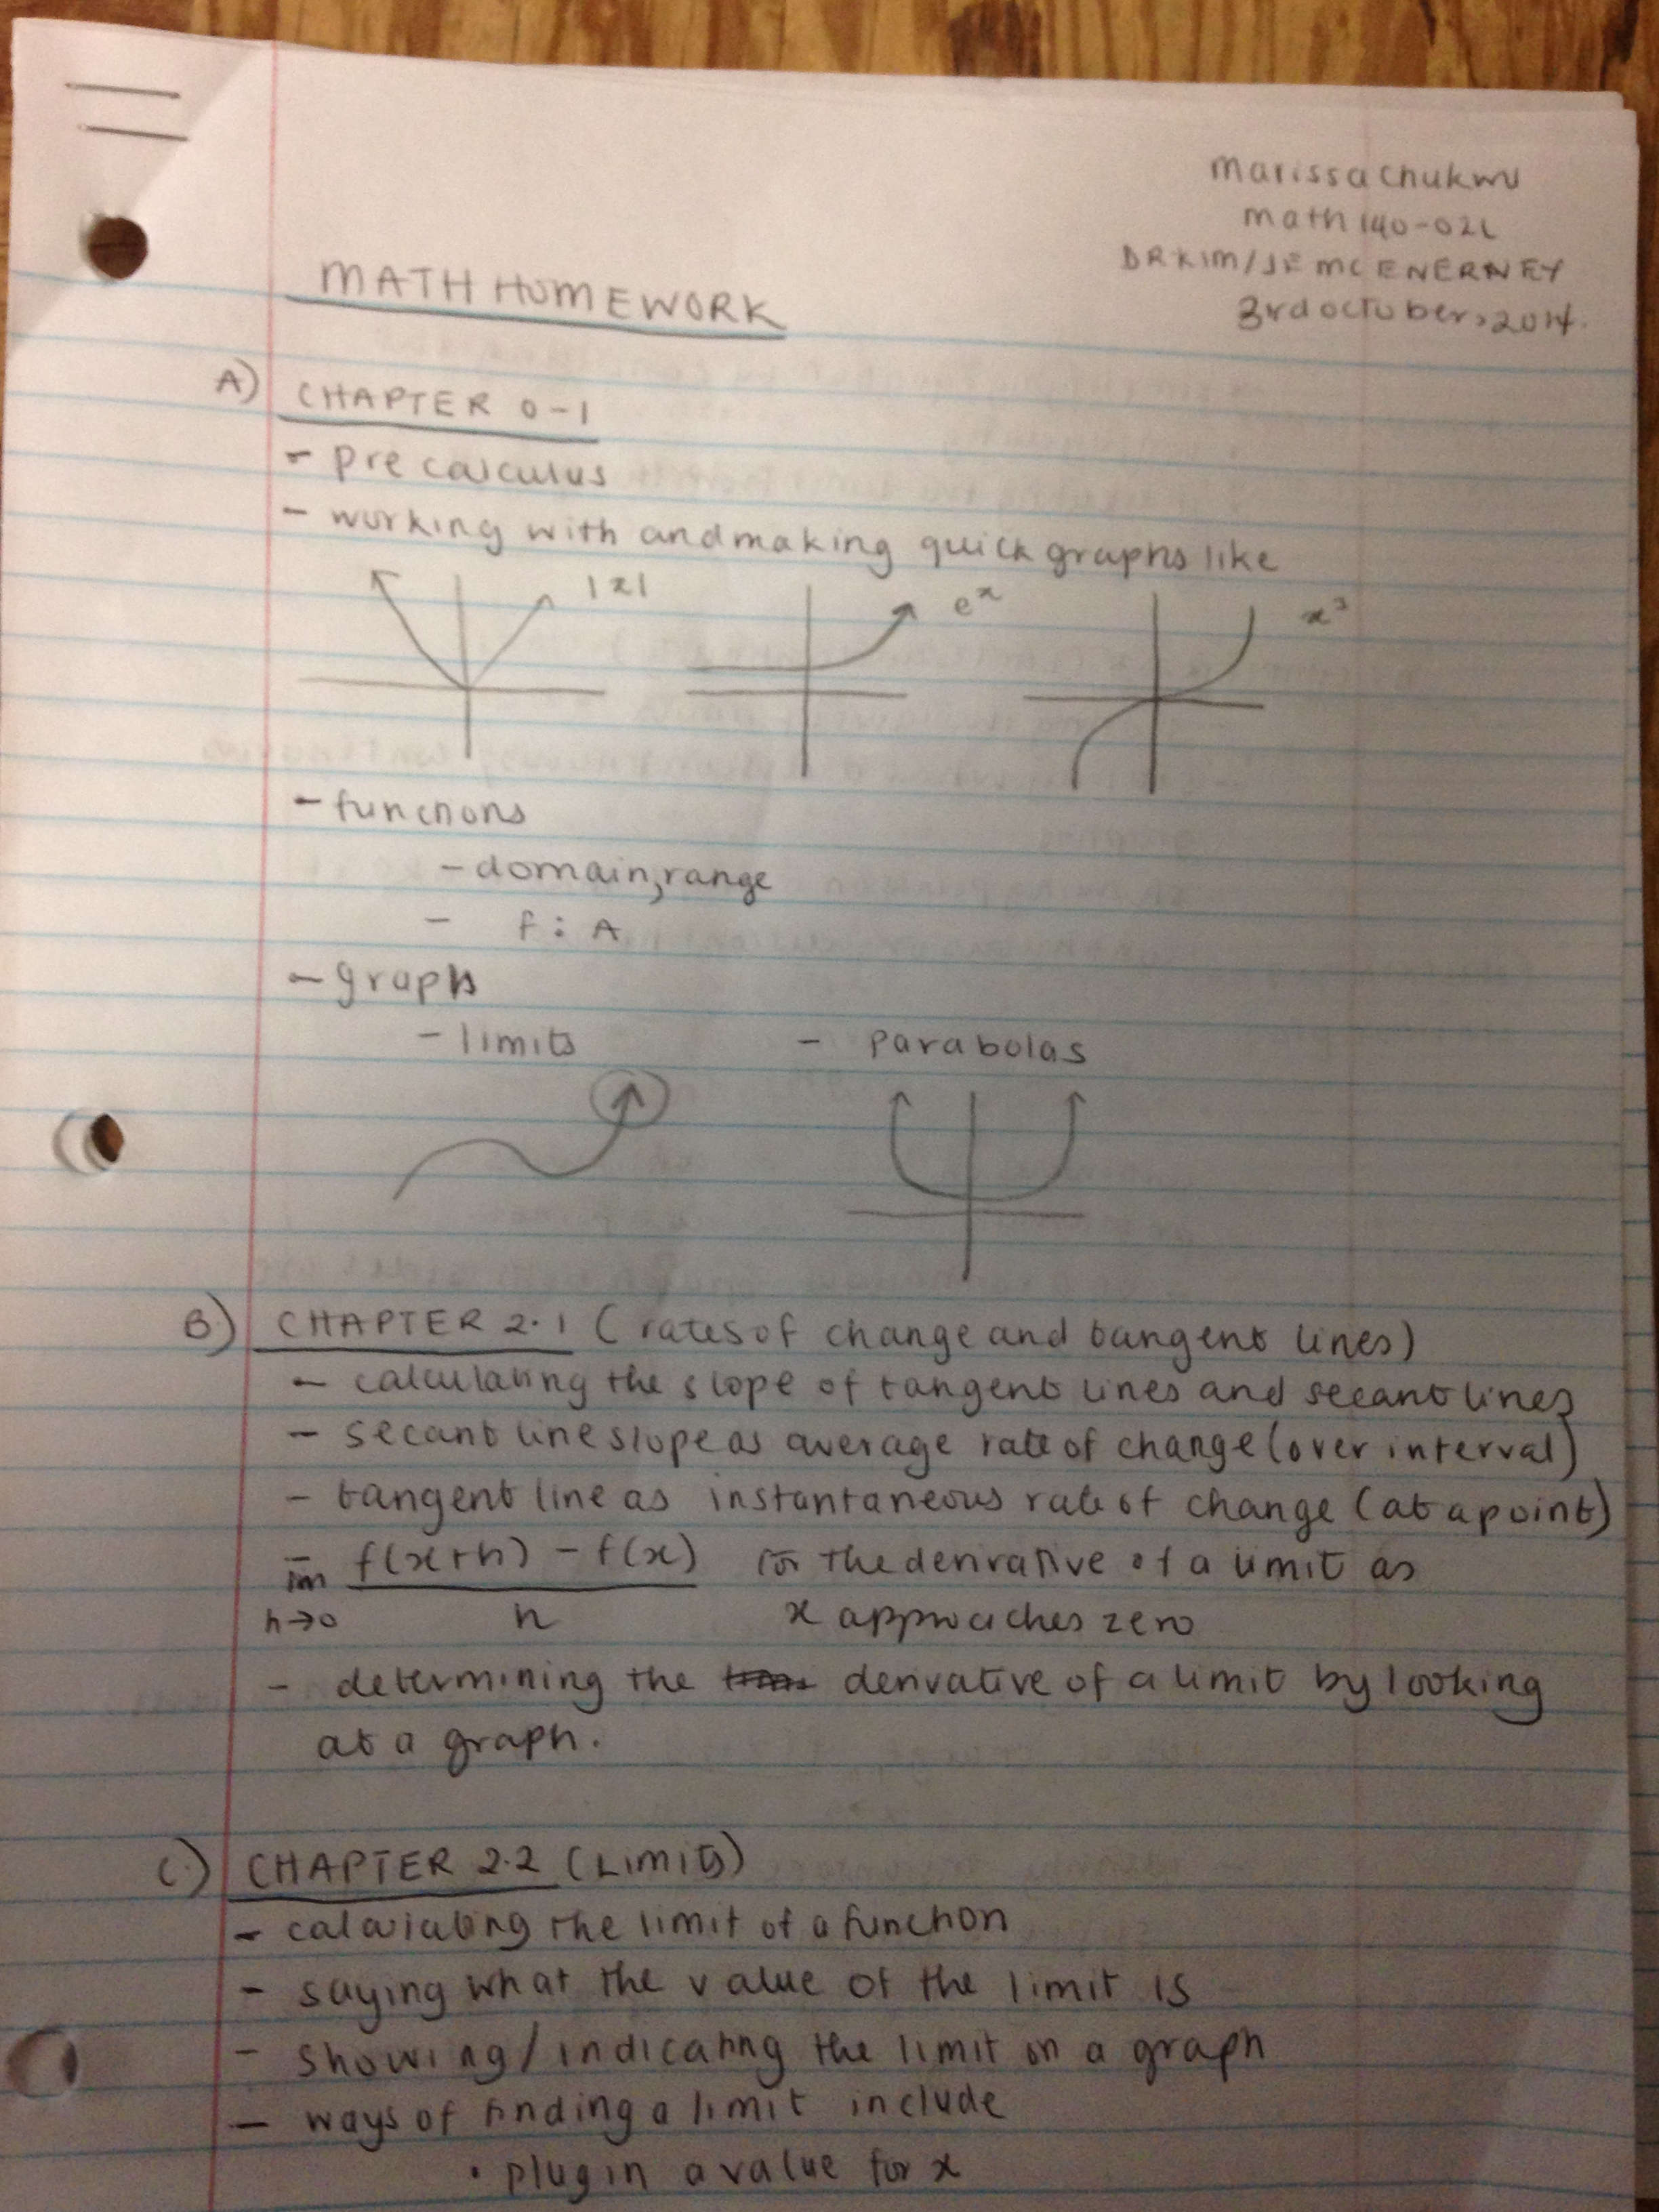 Marissa Chukwu
math 140-02L
DR KIM/JF MCENERNEY
3rd october, 2014.
MATH HOMEWORK
A) CHAPTER 0-1
- pre calculus
- working with and making quick graphs like
|x| e^x x³
- functions
- domain, range
- f: A
- graphs
- limits - parabolas
B) CHAPTER 2.1 (rates of change and tangent lines)
- calculating the slope of tangent lines and secant lines
- secant line slope as average rate of change (over interval)
- tangent line as instantaneous rate of change (at a point)
- lim h→0 f(x+h) - f(x) / h for the derivative of a limit as
x approaches zero
- determining the derivative of a limit by looking
at a graph.
C.) CHAPTER 2.2 (Limits)
- calculating the limit of a function
- saying what the value of the limit is
- showing/indicating the limit on a graph
- ways of finding a limit include
• plug in a value for x